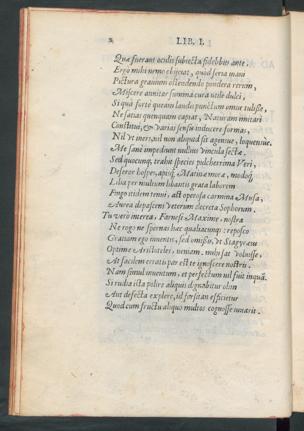 2 LIB. I.
Quæ fuerant oculis subiecta fidelibus ante.
Ergo mihi nemo obijciat, quod seria mani
Pictura grauium ostendendo pondera rerum,
Miscere annitar summa cura utile dulci,
Si qua forte queam laudis punctum omne tulisse.
Ne satias quenquam capiat, Naturam imitari
Constitui, & varias sensu inducere formas,
Nil ut inersˏ nil non aliquid sit agensue, loquensue.
Me sane impediunt nullius vincula sectæ.
Sed quocunq; trahit species pulcherrima Veri,
Deferor hospes, apisq; Matinæ more, modoq;
Liba per multum libantis grata laborem
Fingo itidem tenui, ast operosa carmina Musa,
Aurea depascens veterum decreta Sophorum.
Tu vero interea, Farnesi Maxime, nostra
Ne rogo ne spernas hæc qualiacunq; : reposco
Gratiam ego inuentis, sed omissis, ut Stagyræus
Optime Aristoteles, veniam. mihi sat voluisse,
At facilem errati par est te ignoscere nostris.
Nam simul inuentum, et perfectum nil fuit inquā.
Si rudia ista polire aliquis dignabitur olim
Aut defecta explere, id forsitan efficietur
Quod cum fructu aliquo multos cognosse iuuarit.